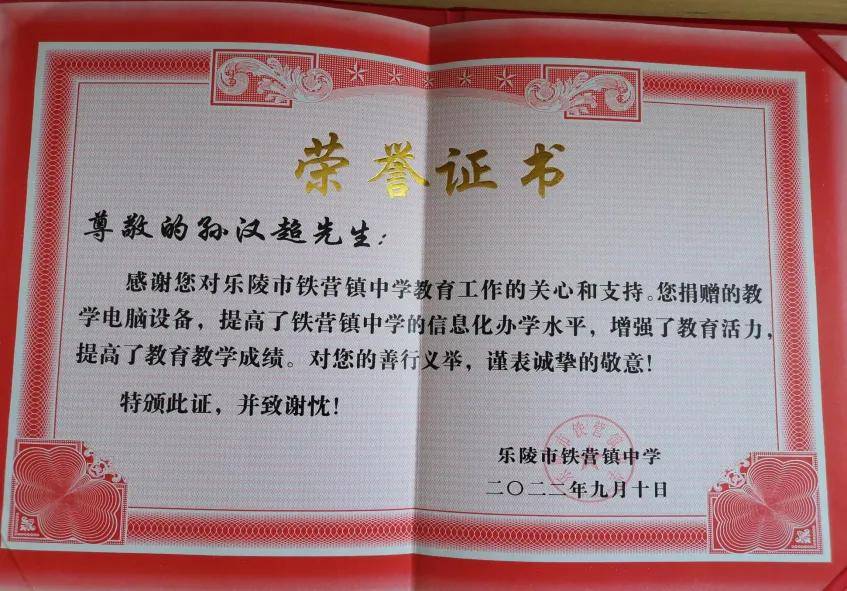 荣誉证书
尊敬的孙汉超先生：
感谢您对乐陵市铁营镇中学教育工作的关心和支持。您捐赠的教
学电脑设备，提高了铁营镇中学的信息化办学水平，增强了教育活力，
提高了教育教学成绩。对您的善行义举，谨表诚挚的敬意！
特颁此证，并致谢忱！
乐陵市铁营镇中学
二〇二二年九月十日